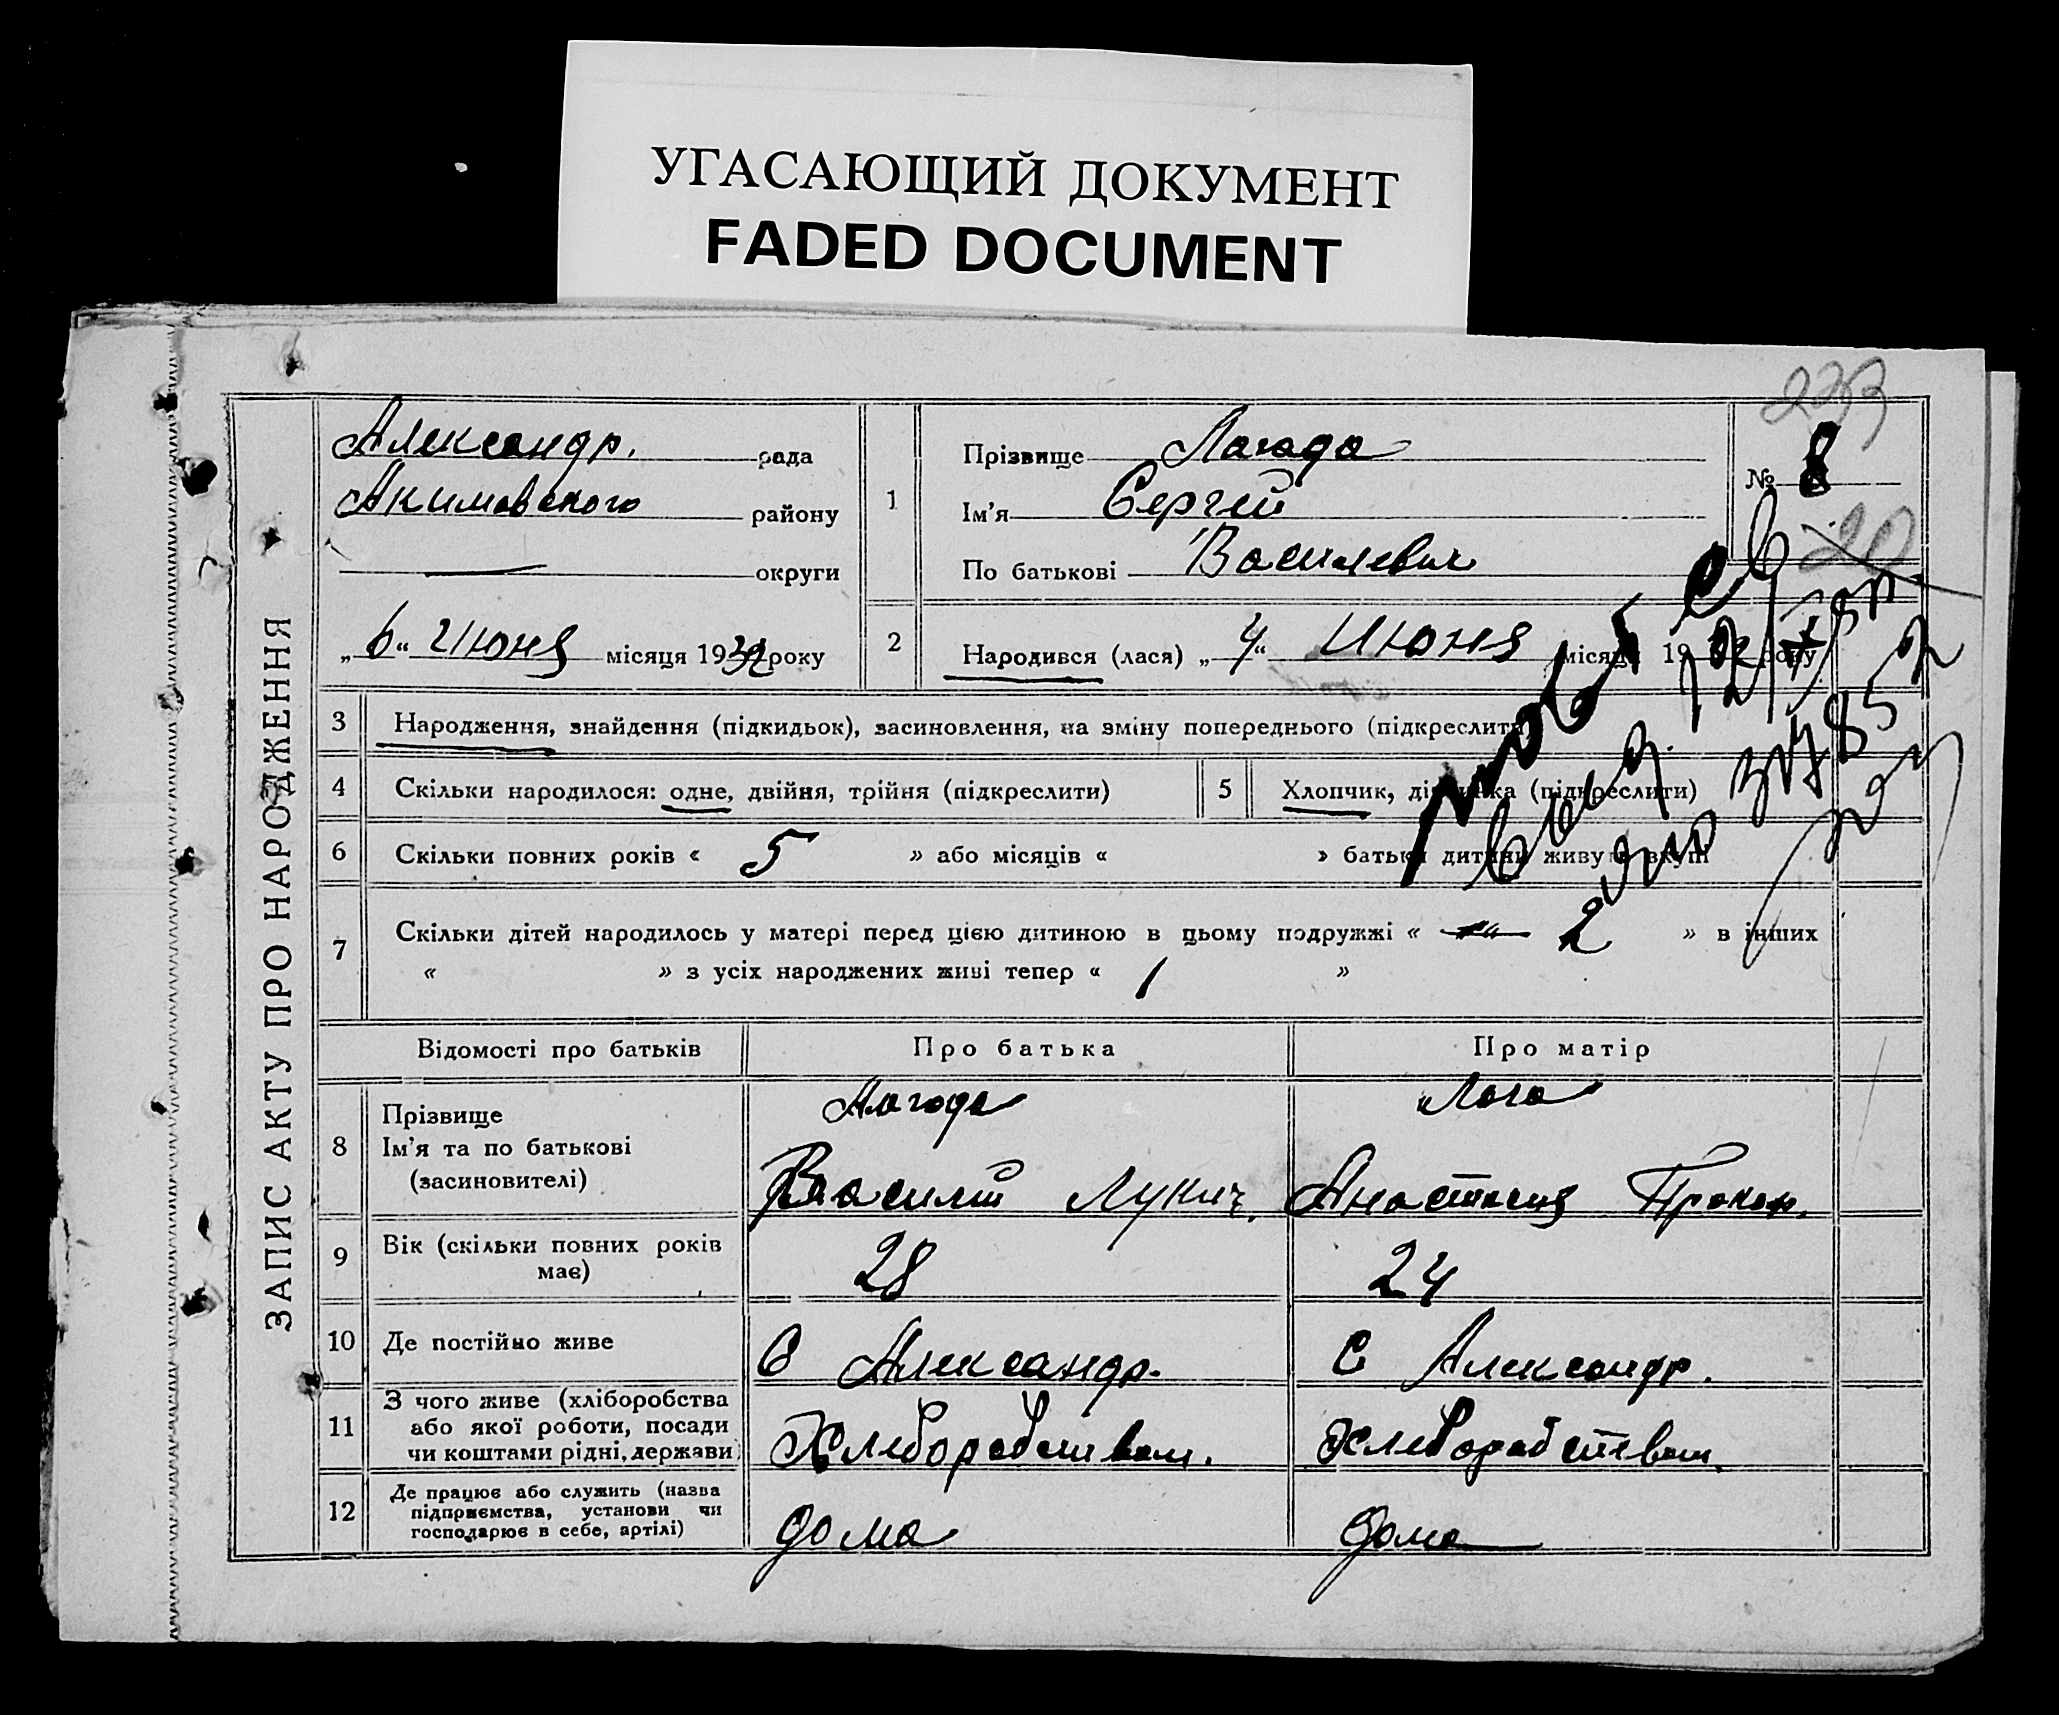 УГАСАЮЩИЙ ДОКУМЕНТ
FADED DOCUMENT
ЗАПИС АКТУ ПРО НАРОДЖЕННЯ
Александр. рада
Акимовского району
округи
„6“ Июня місяця 1932 року
1
Прізвище Лагода
Ім'я Сергей
По батькові Василевич
№ 8
20
2 Народився (лася) „4“ Июня місяця 1932 року
3 Народження, знайдення (підкидьок), засиновлення, на зміну попереднього (підкреслити)
4 Скільки народилося: одне, двійня, трійня (підкреслити)
5 Хлопчик, дівчинка (підкреслити)
6 Скільки повних років « 5 » або місяців « » батьки дитини живуть вкупі
7 Скільки дітей народилось у матері перед цією дитиною в цьому подружжі « 2 » в інших
« » з усіх народжених живі тепер « 1 »
Відомості про батьків Про батька Про матір
8 Прізвище
Ім'я та по батькові
(засиновителі)
Лагода
Василий Лукич.
Лаго
Анастасия Прокоп.
9 Вік (скільки повних років
має)
28 24
10 Де постійно живе С Александр. С Александр.
11 З чого живе (хліборобства
або якої роботи, посади
чи коштами рідні, держави)
Хлеборобством. Хлеборобством.
12 Де працює або служить (назва
підприємства, установи чи
господарює в себе, артілі)
дома дома